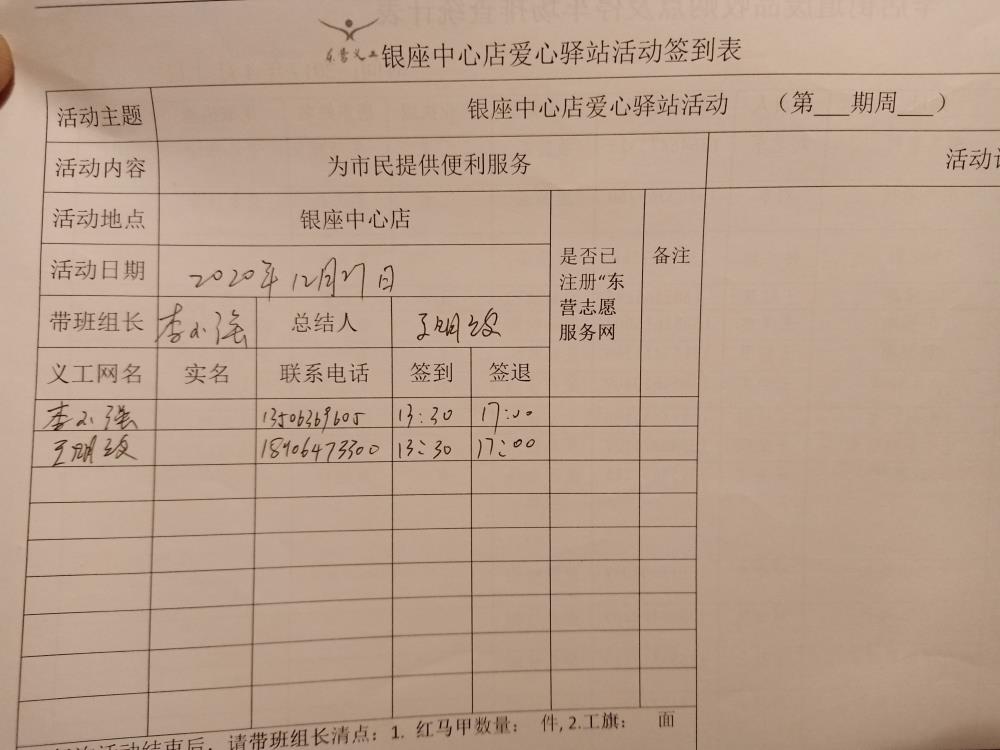 东营义工
银座中心店爱心驿站活动签到表
活动主题 银座中心店爱心驿站活动 （第___期周___）
活动内容 为市民提供便利服务 活动
活动地点 银座中心店
是否已注册“东营志愿服务网
备注
活动日期 2020年12月27日
带班组长 李小强 总结人 王明
义工网名 实名 联系电话 签到 签退
李小强 13506369605 13:30 17:00
王明 18906473300 13:30 17:00
活动结束后，请带班组长清点：1. 红马甲数量： 件, 2.工旗： 面